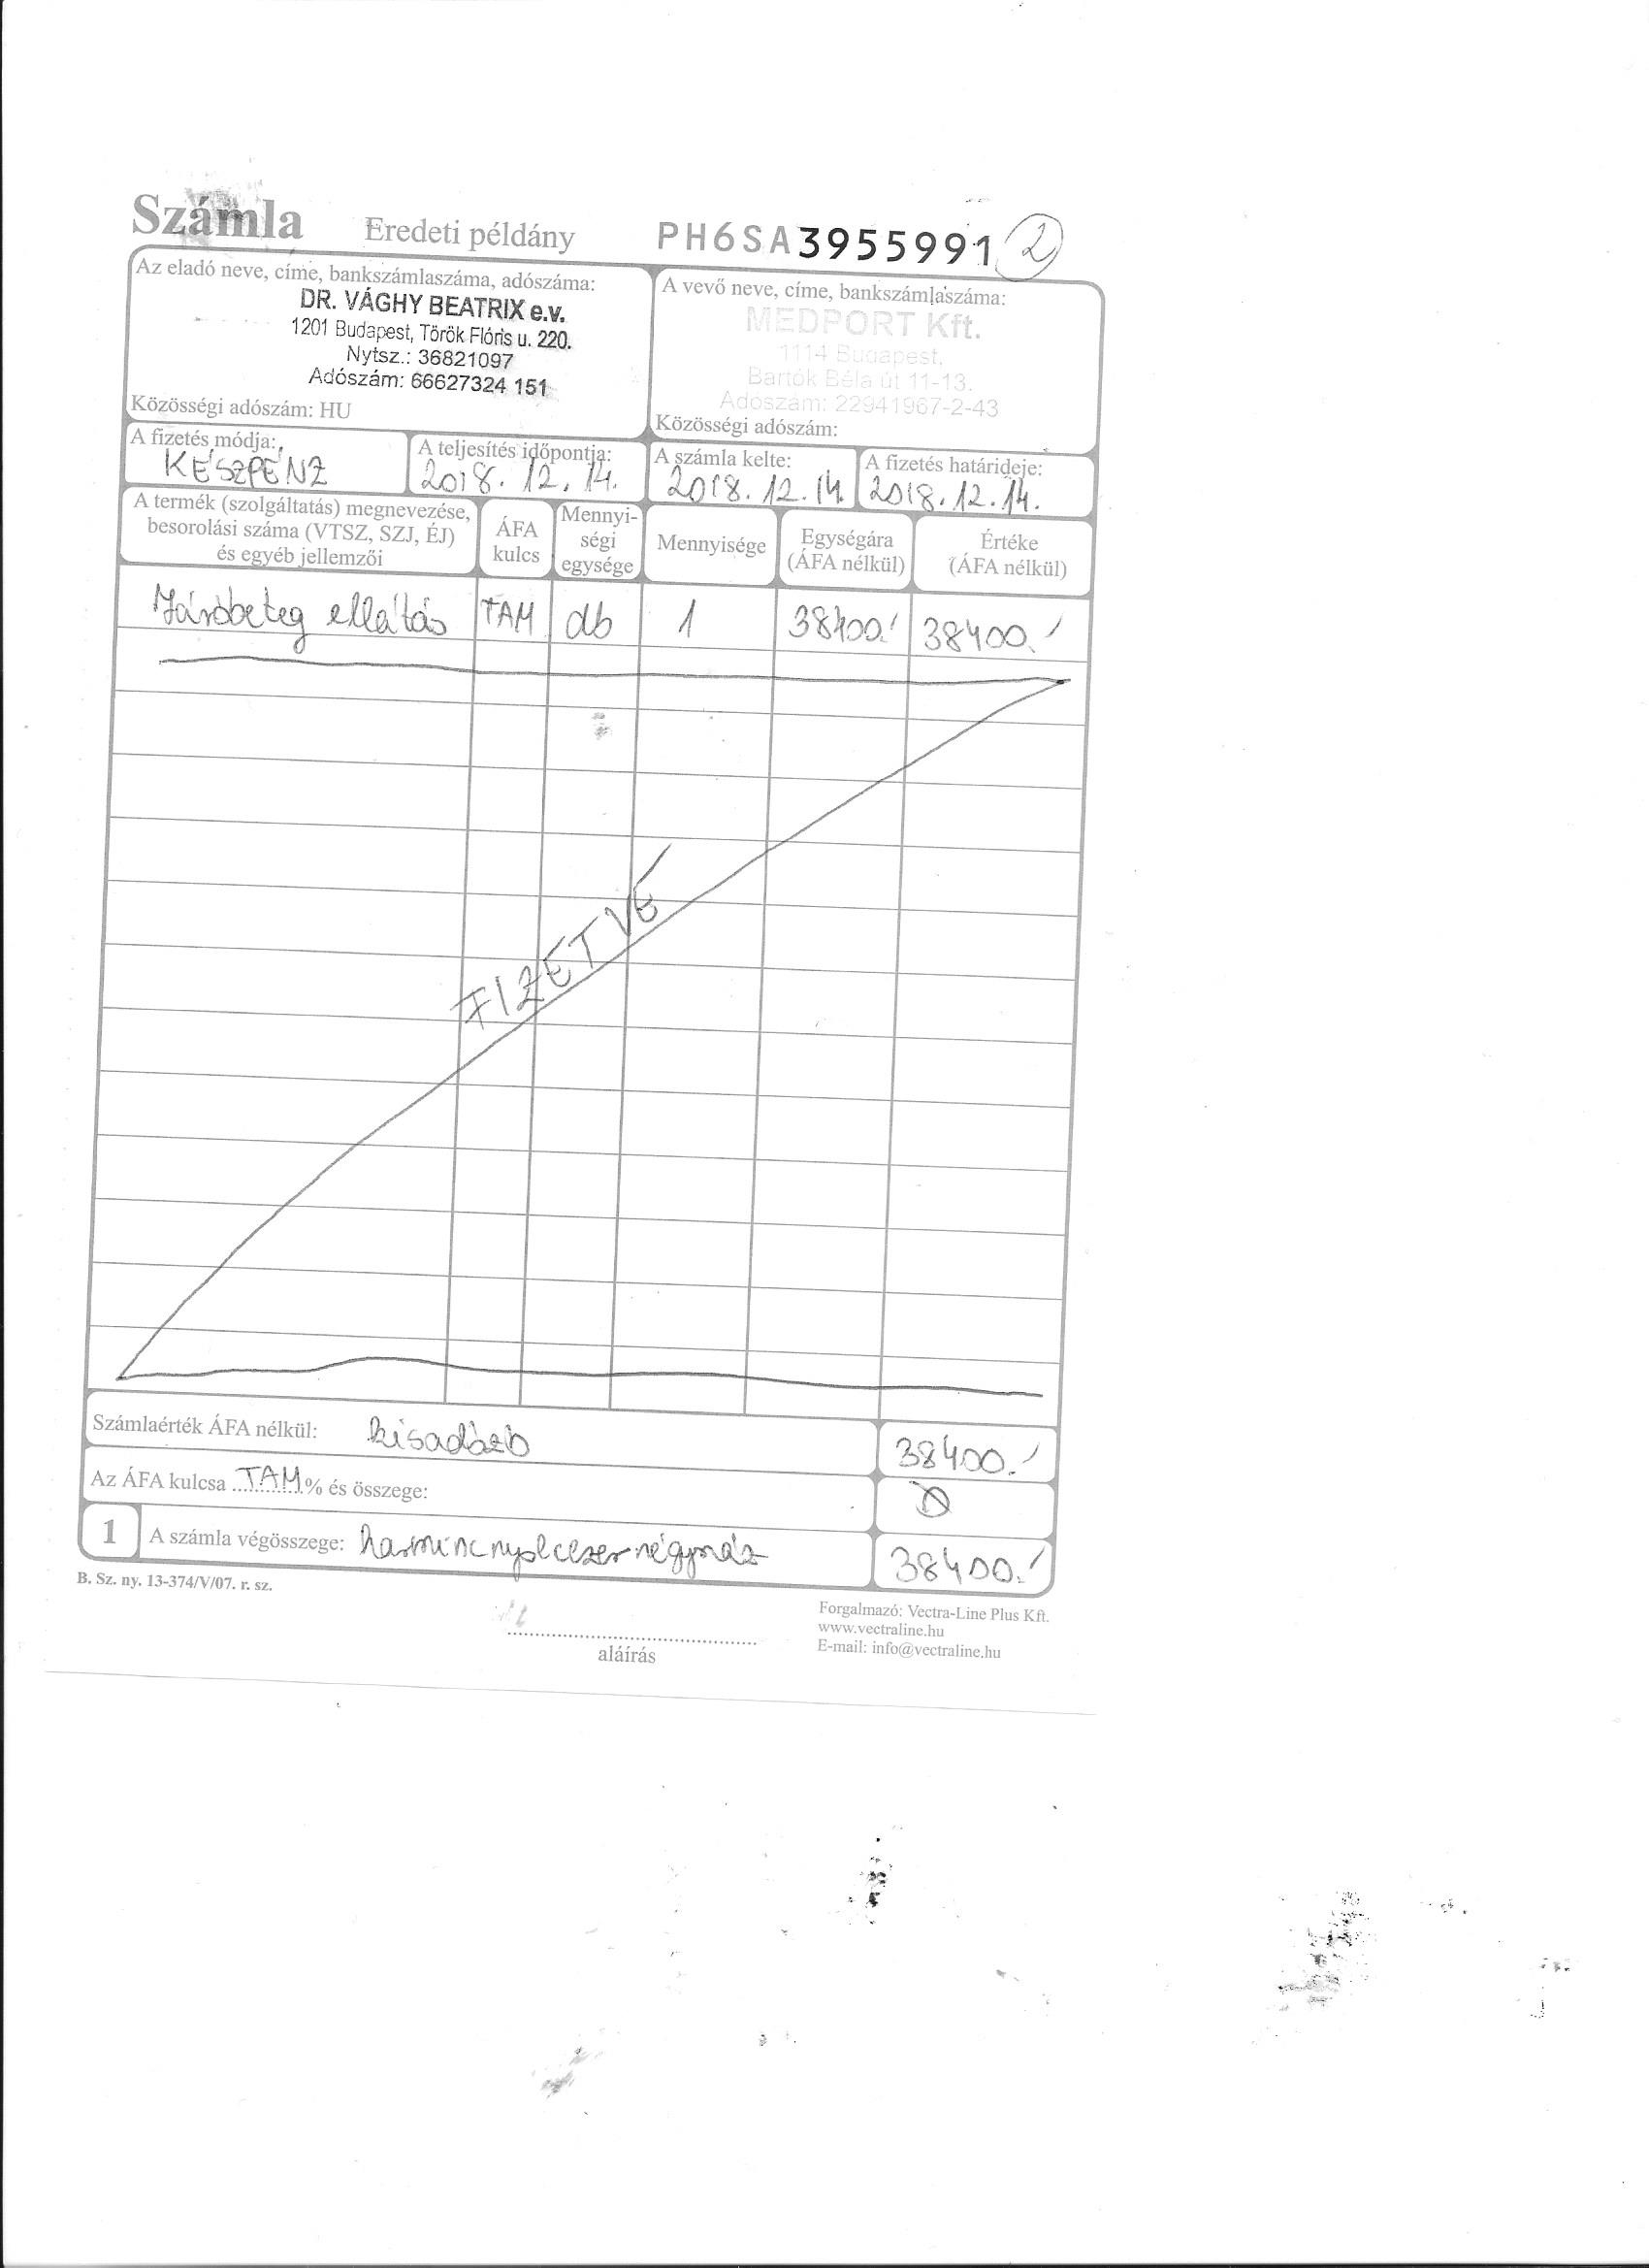 Számla Eredeti példány PH6SA3955991 2
Az eladó neve, címe, bankszámlaszáma, adószáma:
DR. VÁGHY BEATRIX e.v.
1201 Budapest, Török Flóris u. 220.
Nytsz.: 36821097
Adószám: 66627324 151
Közösségi adószám: HU
A vevő neve, címe, bankszámlaszáma:
MEDPORT Kft.
1114 Budapest,
Bartók Béla út 11-13.
Adószám: 22941967-2-43
Közösségi adószám:
A fizetés módja:
KÉSZPÉNZ
A teljesítés időpontja:
2018. 12. 14.
A számla kelte:
2018. 12. 14.
A fizetés határideje:
2018. 12. 14.
A termék (szolgáltatás) megnevezése,
besorolási száma (VTSZ, SZJ, ÉJ)
és egyéb jellemzői
ÁFA
kulcs
Mennyi-
ségi
egysége
Mennyisége
Egységára
(ÁFA nélkül)
Értéke
(ÁFA nélkül)
Járóbeteg ellátás TAM db 1 38400.- 38400.-
FIZETVE
Számlaérték ÁFA nélkül: kisadózó 38400.-
Az ÁFA kulcsa TAM % és összege: 0
1 A számla végösszege: harmincnyolcezernégyszáz 38400.-
B. Sz. ny. 13-374/V/07. r. sz.
aláírás
Forgalmazó: Vectra-Line Plus Kft.
www.vectraline.hu
E-mail: info@vectraline.hu